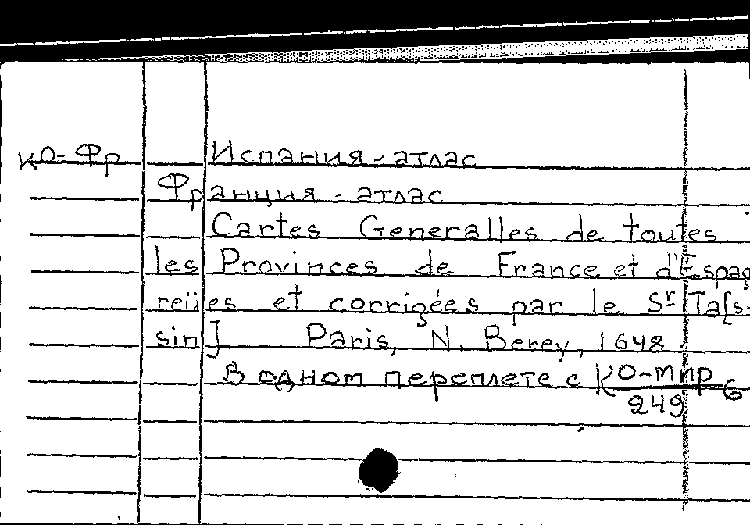 ко-Фр Испания - атлас
Франция - атлас
Cartes Generalles de toutes
les Provinces de France et d'Espag
reües et corrigées par le Sr Ta[s-
sin] Paris, N. Berey, 1648.
В одном переплете с КО-мир
249